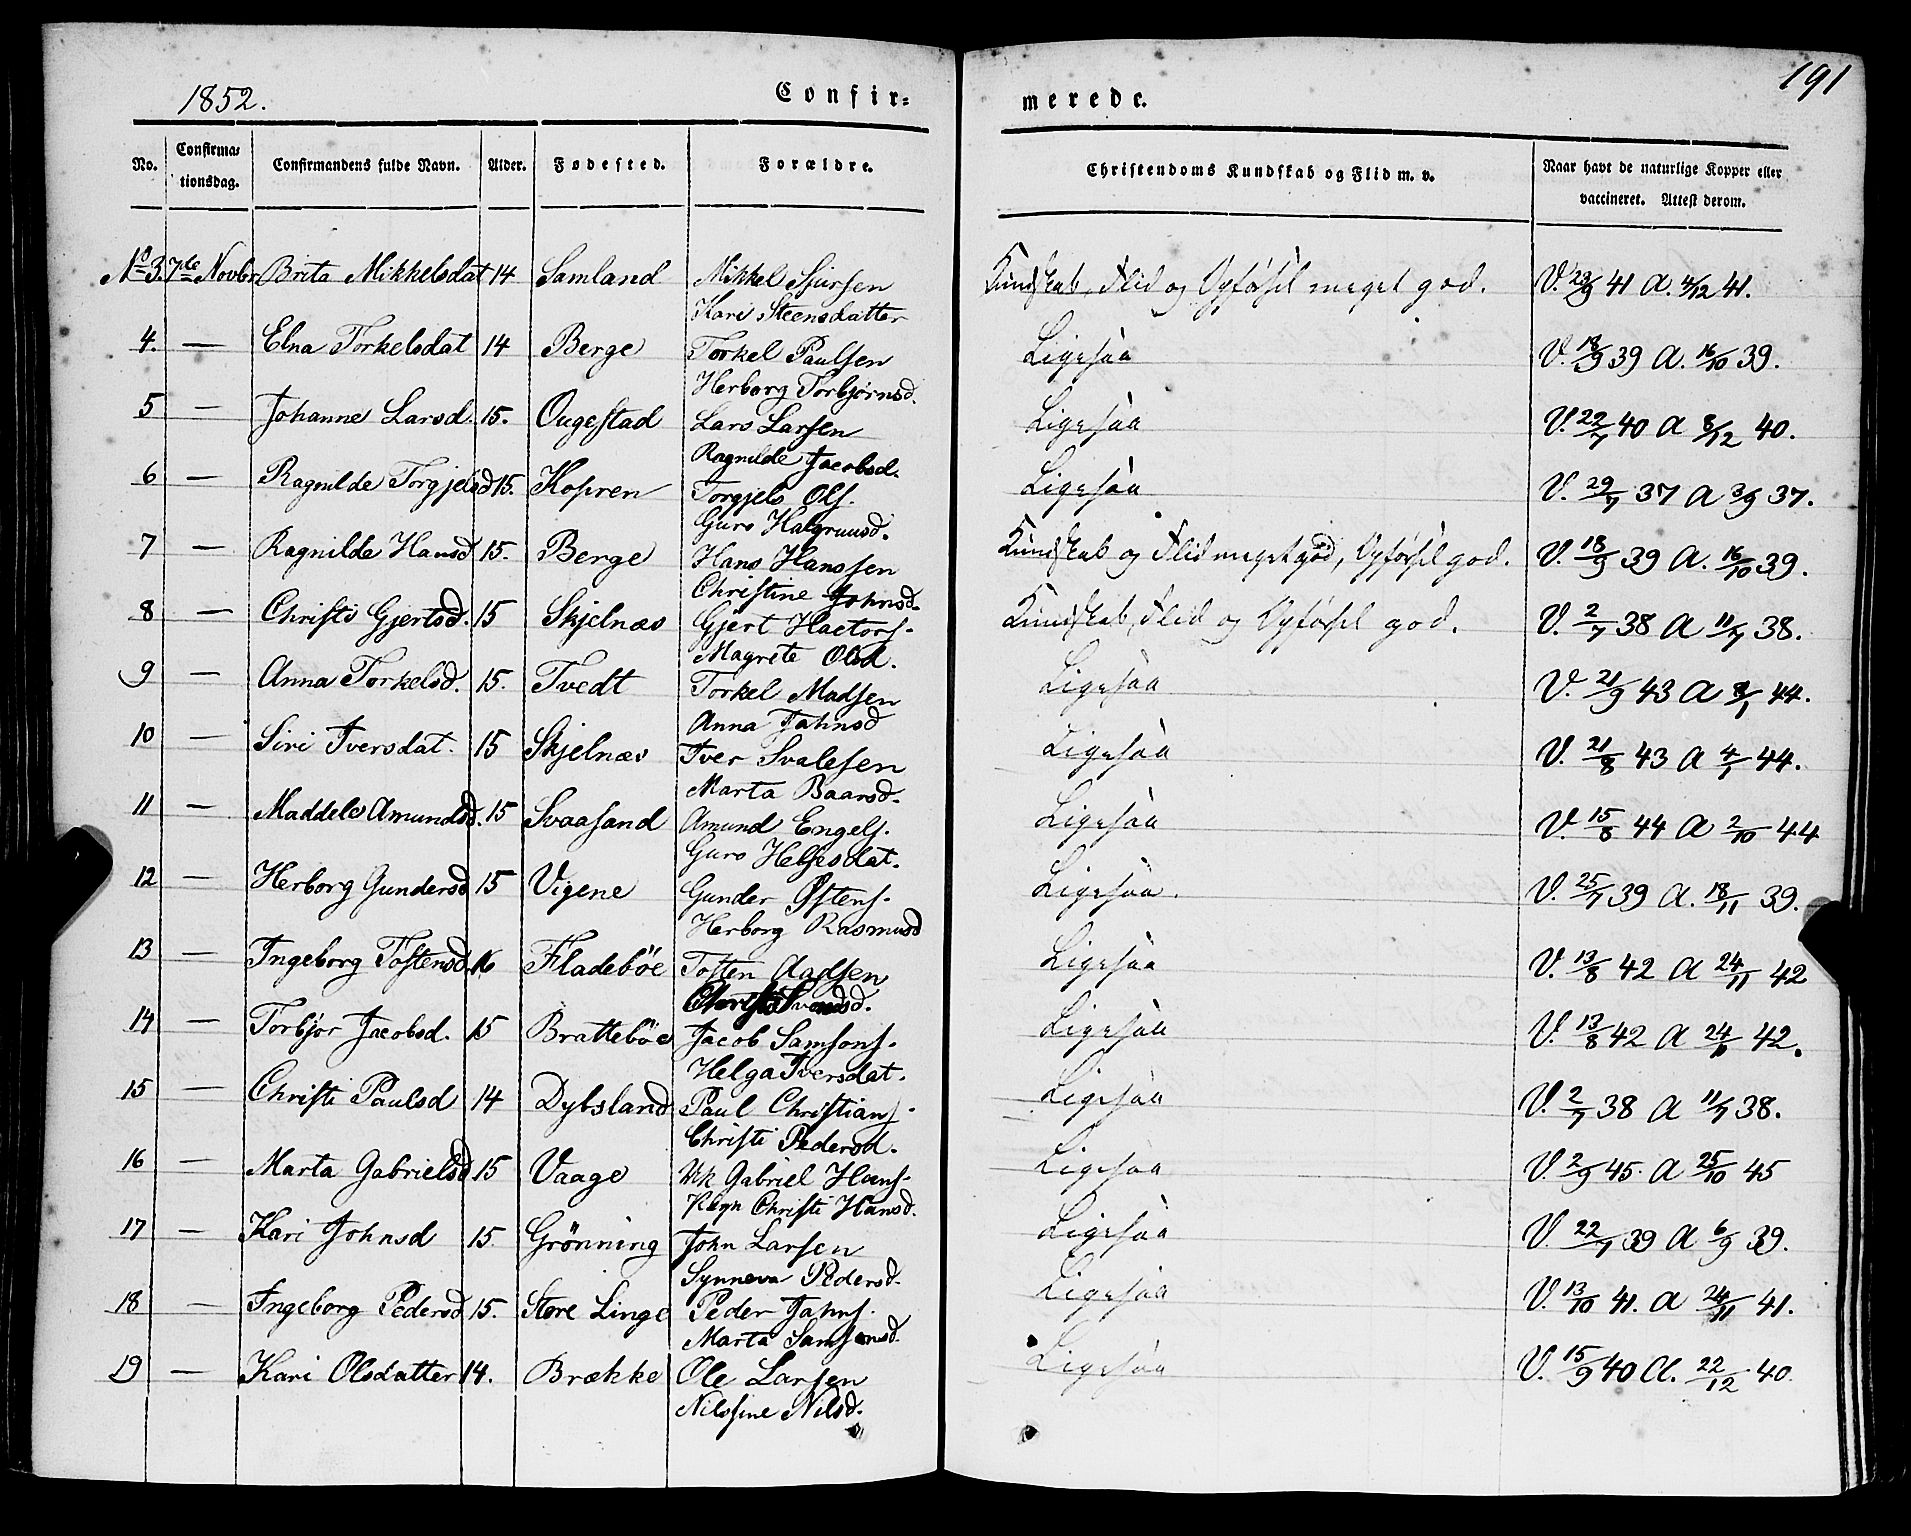 1852. Confir= merede. 191
No. Confirma= tionsdag. Confirmandens fulde Navn. Alder. Fødested. Forældre. Christendoms Kundskab og Flid m. v. Naar havt de naturlige Kopper eller vaccineret. Attest derom.
No 3. 7de Novbr Brita Mikkelsdat 14 Samland Mikkel Sjursen Kundskab, Flid og Opførsel meget god. V. 23/9 41 A. 4/12 41.
Kari Steensdatter
4. — Elna Torkelsdat 14 Berge Torkel Paulsen Ligesaa V. 18/9 39 A. 16/10 39.
Herborg Torbjørnsd.
5 — Johanne Larsd. 15. Ougestad Lars Larsen Ligesaa V. 22/7 40 A 8/12 40.
Ragnilde Jacobsd.
6 — Ragnilde Torgjelsd 15. Kopren Torgjels Ols. Ligesaa V. 29/7 37 A 3/9 37.
Guro
7 — Ragnilde Hansd 15. Berge Hans Hanssen Kundskab og Flid meget god, Opførsel god. V. 18/9 39 A. 16/10 39.
Christine Johnsd.
8 — Christi Gjertsd. 15 Skjelnæs Gjert Hactors. Kundskab, Flid og Opførsel god. V. 2/7 38 A 11/7 38.
Magrete Olsd.
9 — Anna Torkelsd. 15. Tvedt Torkel Madsen Ligesaa V. 21/9 43 A /1 44.
Anna Johnsd
10 — Siri Iversdat. 15 Skjelnæs Iver Svalesen Ligesaa V. 21/8 43 A 4/1 44.
Marta Baarsd.
11 — Maddele Amundsd. 15 Svaasand Amund Engels. Ligesaa V. 15/8 44 A 2/10 44
Guro Helgesdat.
12 — Herborg Gundersd 15 Vigene Gunder Østens. Ligesaa. V. 25/7 39 A. 18/11 39.
Herborg Rasmusd
13 — Ingeborg Tostensd. 16 Fladeböe Tosten Aadsen Ligesaa V. 13/8 42 A 24/11 42
Christi Svendsd.
14 — Torbjor Jacobsd. 15 Bratteböe Jacob Samsons. Ligesaa V. 13/8 42 A 24/11 42.
Helga Iversdat.
15 — Christi Paulsd 14 Dybsland Paul Christians. Ligesaa V. 2/7 38 A 11/7 38.
Christi Pedersd.
16 — Marta Gabrielsd 15 Vaage Uk Gabriel Hans. Ligesaa V. 2/9 45. A 25/10 45
Christi Hansd.
17 — Kari Johnsd 15. Grönning John Larsen Ligesaa V. 22/7 39 A 6/9 39.
Synneva Pedersd.
18 — Ingeborg Pedersd 15. Store Linge Peder Johns. Ligesaa V. 13/10 41. A 24/11 41.
Marta Samsonsd.
19 — Kari Olsdatter 14. Brække Ole Larsen Ligesaa V. 15/9 40 A. 22/12 40.
Nilssine Nilsd.